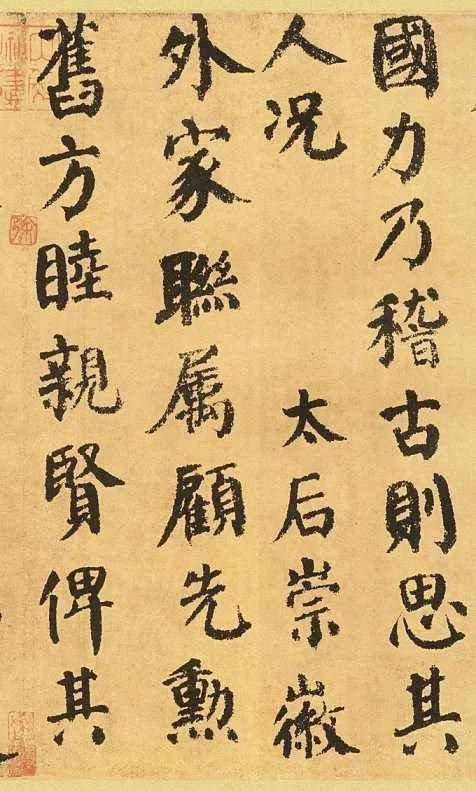 國力乃稽古則思其
人况 太后崇徽
外家聯属顧先勳
舊方睦親賢俾其